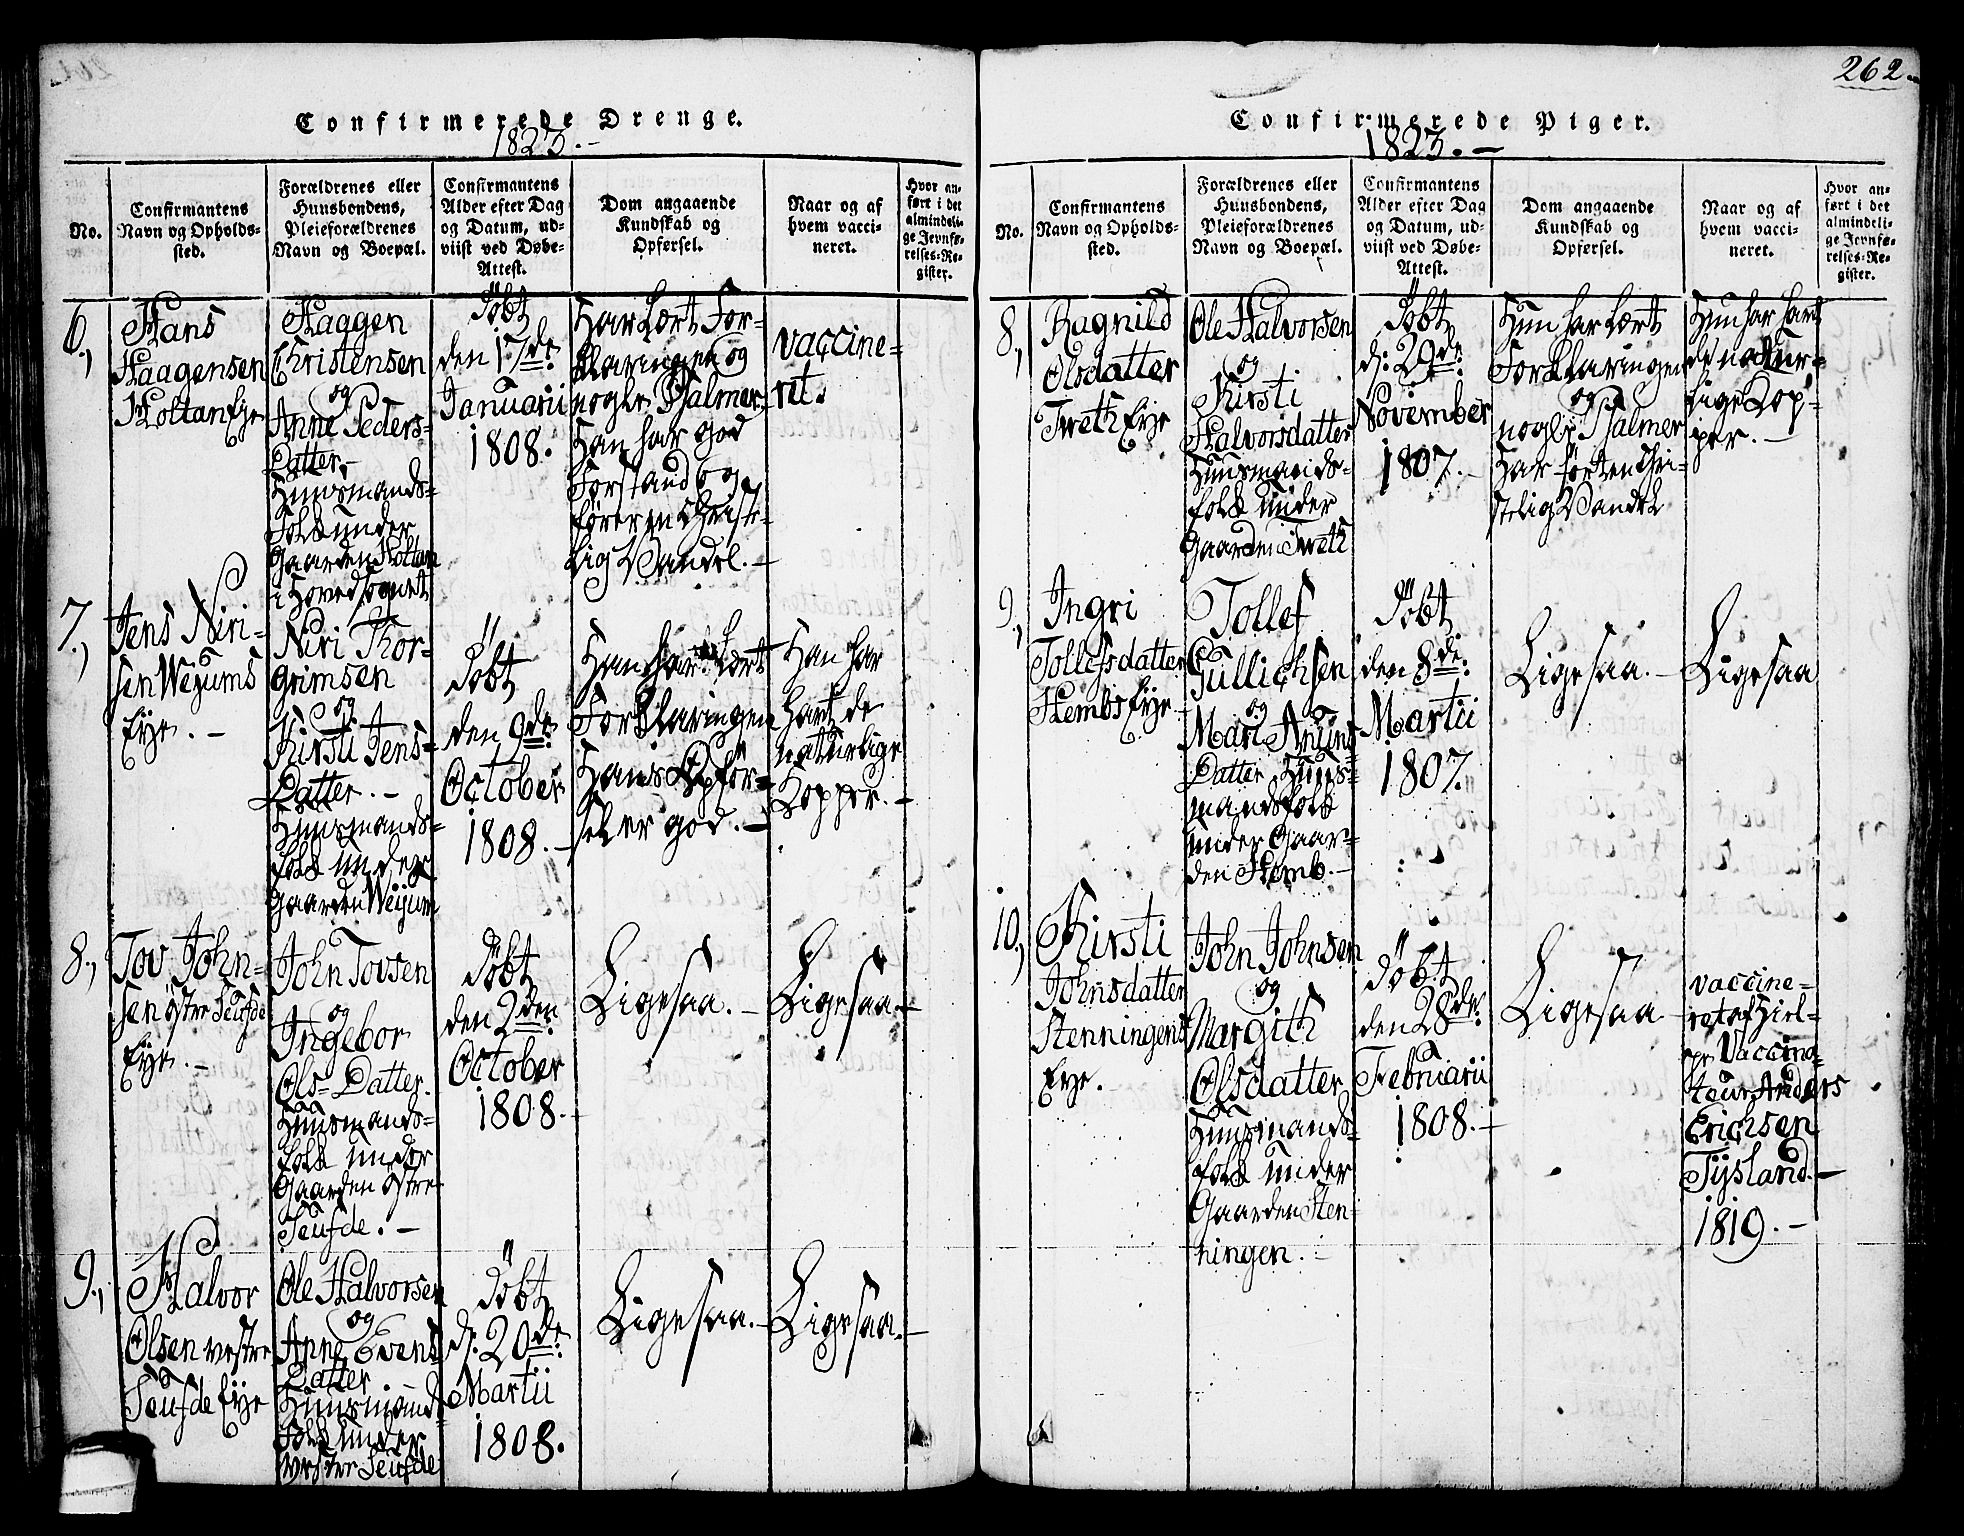 262.
Confirmerede Drenge.
1823.-
No.
Confirmantens
Navn og Opholds-
sted.
Forældrenes eller
Huusbondens,
Pleieforældrenes
Navn og Boepæl.
Confirmantens
Alder efter Dag
og Datum, ud-
viist ved Døbe-
Attest.
Dom angaaende
Kundskab og
Opførsel.
Naar og af
hvem vacci-
neret.
Hvor an-
ført i det
almindeli-
ge Jevnfø-
relses-Re-
gister.
6.,
Hans
Haagensen
Holtan Eye
Haggen
Christensen
og
Anne Peders-
Datter.
Huusmands-
Folk under
Gaarden Holtan
i Hovedsognet
Döbt
den 17de
Januarii
1808.
Har lært For-
klaringen og
nogle Psalmer.
Han har god
Forstand og
fører en christe-
lig Vandel.-
vaccine-
ret.
7.,
Jens Niri-
sen Weyums
Eye.-
Niri Thor-
grimsen
og
Kirsti Jens-
Datter.-
Huusmands-
folk under
Gaarden Weyum
Döbt
den 9de
October
1808.-
Han har lært
Forklaringen
Hans Opfør-
sel er god.-
Han har
havt de
naturlige
Kopper.-
8.,
Tov John-
sen östre Seufde
Eye.-
John Tovsen
og
Ingebor
Ols-Datter.
Huusmands-
folk under
Gaarden östre
Seufde.-
Döbt
den 2den
October
1808.-
Ligesaa.-
Ligesaa.-
9.,
Halvor
Olsen vestre
Seufde Eye
Ole Halvorsen
og
Anne Evens
Datter
Huusmands-
Folk under
vester Seufde
Döbt
d: 20de:
Martii
1808.
Ligesaa.-
Ligesaa.-
Confirmerede Piger.
1823.-
No.
Confirmantens
Navn og Opholds-
sted.
Forældrenes eller
Huusbondens,
Pleieforældrenes
Navn og Boepæl.
Confirmantens
Alder efter Dag
og Datum, ud-
viist ved Døbe-
Attest.
Dom angaaende
Kundskab og
Opførsel.
Naar og af
hvem vacci-
neret.
Hvor an-
ført i det
almindeli-
ge Jevnfø-
relses-Re-
gister.
8.,
Ragnild
Olsdatter
Tweth Eye
Ole Halvorsen
og
Kirsti
Halvorsdatter
Huusmands-
folk under
Gaarden Tweth
Döbt
d: 29de:
November
1807.-
Hun har lært
Forklaringen
og
nogle Psalmer
Har ført en Chri-
stelig Vandel
Hun har havt
de natur-
lige Kop-
per.-
9.,
Ingri
Tollefsdatter
Hembs Eye
Tollef
Gullichsen
og
Mari Anuns
Datter Huus-
mandsfolk
under Gaar-
den Hemb.-
Döbt
den 8de:
Martii
1807.
Ligesaa.-
Ligesaa
10.,
Kirsti
Johnsdatter
Stenningens
Eye.
John Johnsen
og
Margith
Olsdatter
Huusmands-
folk under
Gaarden Sten-
ningen.-
Döbt
den 28de:
Februarii
1808.-
Ligesaa
vaccine-
ret af Hiel-
pe Vaccina-
teur Anders
Erichsen
Tysland.-
1819.-